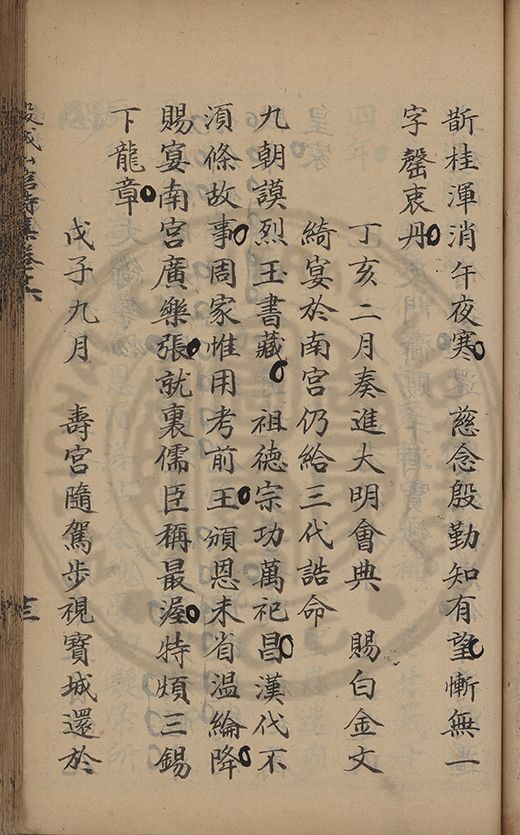 斮桂渾消午夜寒 慈念殷勤知有望慚無一
字罄衷丹
丁亥二月奏進大明會典 賜白金文
綺宴於南宮仍給三代誥命
九朝謨烈玉書藏 祖德宗功萬祀昌漢代不
須條故事周家惟用考前王頒恩未省溫綸降
賜宴南宮廣樂張就裏儒臣稱最渥特頒三錫
下龍章
戊子九月 壽宮隨駕步視寶城還於
十三